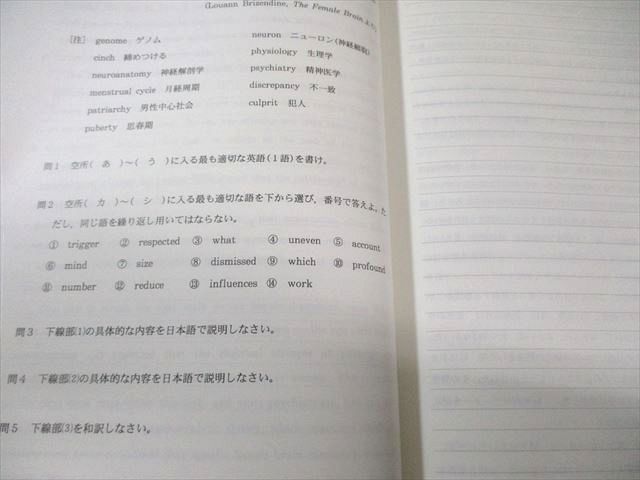 (Louann Brizendine, The Female Brain より)
[注] genome ゲノム neuron ニューロン(神経細胞)
cinch 締めつける physiology 生理学
neuroanatomy 神経解剖学 psychiatry 精神医学
menstrual cycle 月経周期 discrepancy 不一致
patriarchy 男性中心社会 culprit 犯人
puberty 思春期
問1 空所( あ )~( う )に入る最も適切な英語(1語)を書け。
問2 空所( カ )~( シ )に入る最も適切な語を下から選び,番号で答えよ。た
だし,同じ語を繰り返し用いてはならない。
① trigger ② respected ③ what ④ uneven ⑤ account
⑥ mind ⑦ size ⑧ dismissed ⑨ which ⑩ profound
⑪ number ⑫ reduce ⑬ influences ⑭ work
問3 下線部(1)の具体的な内容を日本語で説明しなさい。
問4 下線部(2)の具体的な内容を日本語で説明しなさい。
問5 下線部(3)を和訳しなさい。